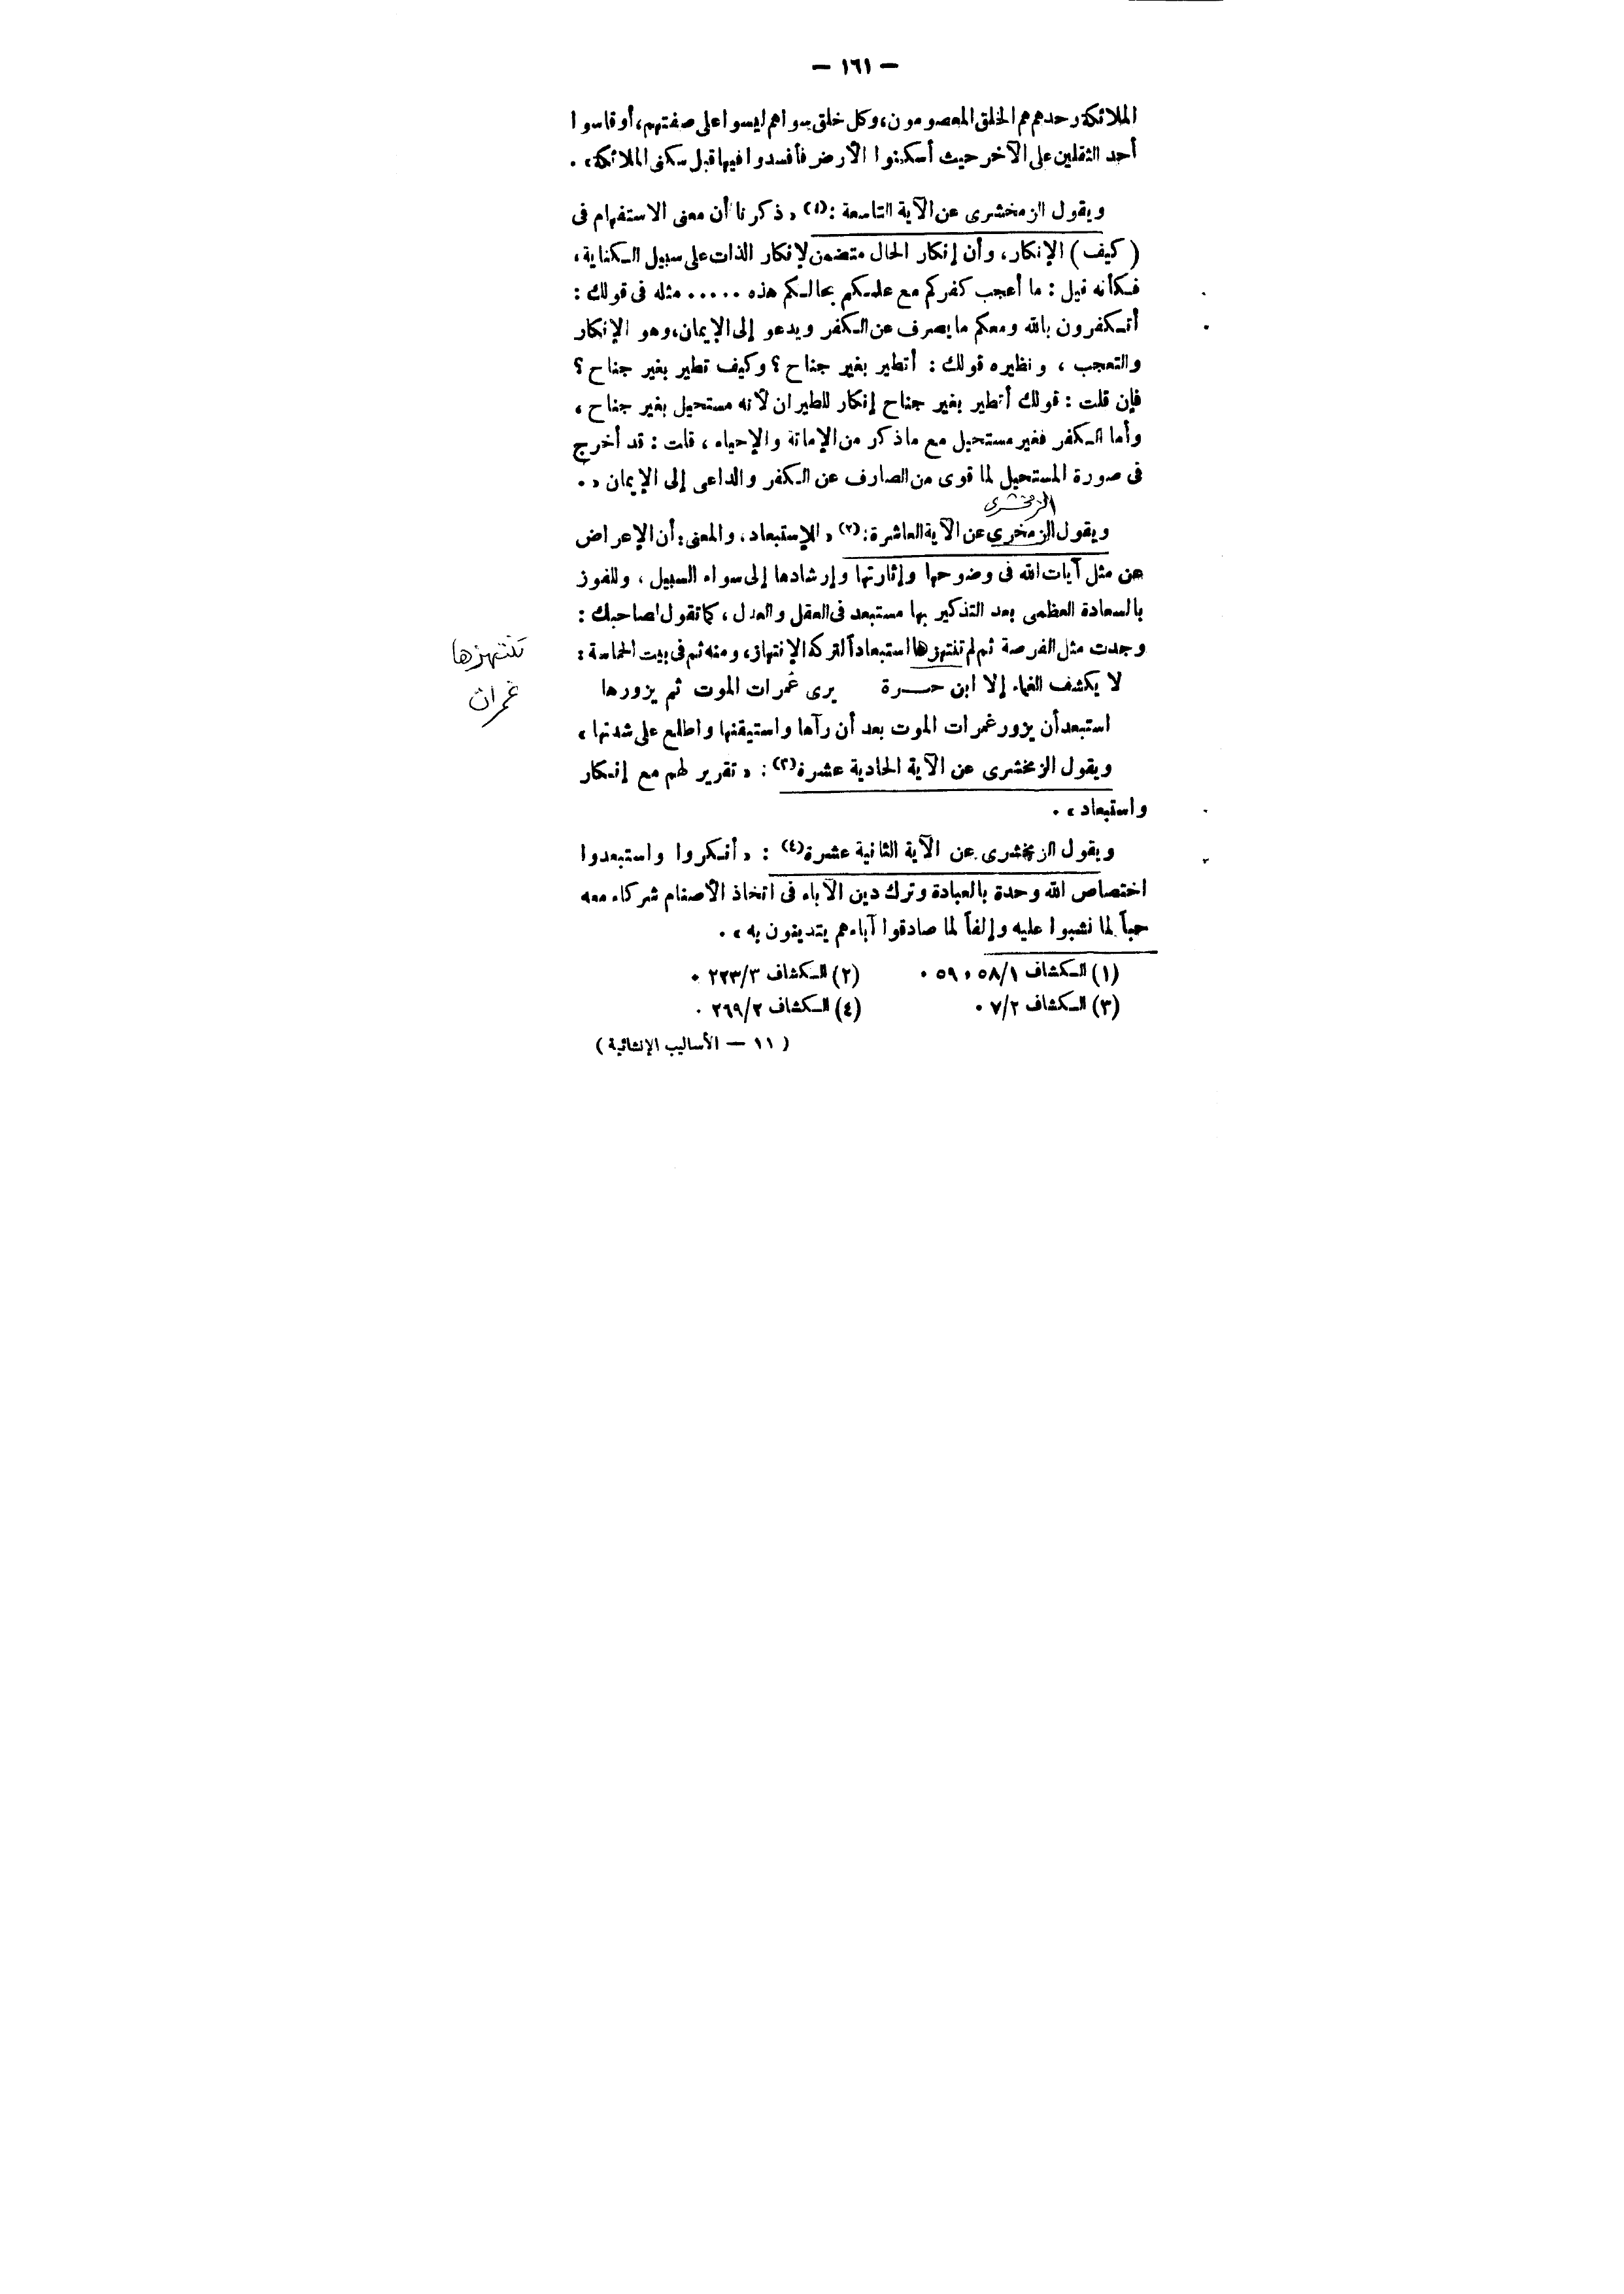 — ١٦١ —
الملائكة وحدهم هم الخلق المعصومون، وكل خلق سواهم ليسوا على صفتهم، أو قاسوا
أحد الثقلين على الآخر حيث أسكنوا الأرض فأفسدوا فيها قبل سكنى الملائكة».
ويقول الزمخشرى عن الآية التاسعة :(١) «ذكرنا أن معنى الاستفهام فى
(كيف) الإنكار، وأن إنكار الحال متضمن لإنكار الذات على سبيل الكناية،
فكأنه قيل : ما أعجب كفركم مع علمكم بحالكم هذه ..... مثله فى قولك :
أتكفرون بالله ومعكم ما يصرف عن الكفر ويدعو إلى الإيمان، وهو الإنكار
والتعجب ، ونظيره قولك : أتطير بغير جناح ؟ وكيف تطير بغير جناح ؟
فإن قلت : قولك أتطير بغير جناح إنكار للطيران لأنه مستحيل بغير جناح ،
وأما الكفر فغير مستحيل مع ما ذكر من الإماتة والإحياء ، قلت : قد أخرج
فى صورة المستحيل لما قوى من الصارف عن الكفر والداعى إلى الإيمان» .
الزمخشرى
ويقول الزمخرى عن الآية العاشرة :(٢) «للإستبعاد، والمعنى : أن الإعراض
عن مثل آيات الله فى وضوحها وإنارتها وإرشادها إلى سواء السبيل ، وللفوز
بالسعادة العظمى بعد التذكير بها مستبعد فى العقل والعدل ، كما تقول لصاحبك :
وجدت مثل الفرصة ثم لم تنتهزها استبعاداً لتركه الإنتهاز، ومنه ثم فى بيت الحماسة :
تنتهزها
لا يكشف الغماء إلا ابن حرة يرى غمرات الموت ثم يزورها
غمرات
استبعد أن يزور غمرات الموت بعد أن رآها واستيقنها واطلع على شدتها»
ويقول الزمخشرى عن الآية الحادية عشرة(٣) : «تقرير لهم مع إنكار
واستبعاد» .
ويقول الزمخشرى عن الآية الثانية عشرة(٤) : «أنكروا واستبعدوا
اختصاص الله وحدة بالعبادة وترك دين الآباء فى اتخاذ الأصنام شركاء معه
حباً لما نشبوا عليه وإلفاً لما صادقوا آباءهم يتدينون به» .
(١) الكشاف ٥٨/١ ، ٥٩ . (٢) الكشاف ٢٢٣/٣ .
(٣) الكشاف ٧/٢ . (٤) الكشاف ٢٦٩/٢ .
( ١١ — الأساليب الإنشائية )